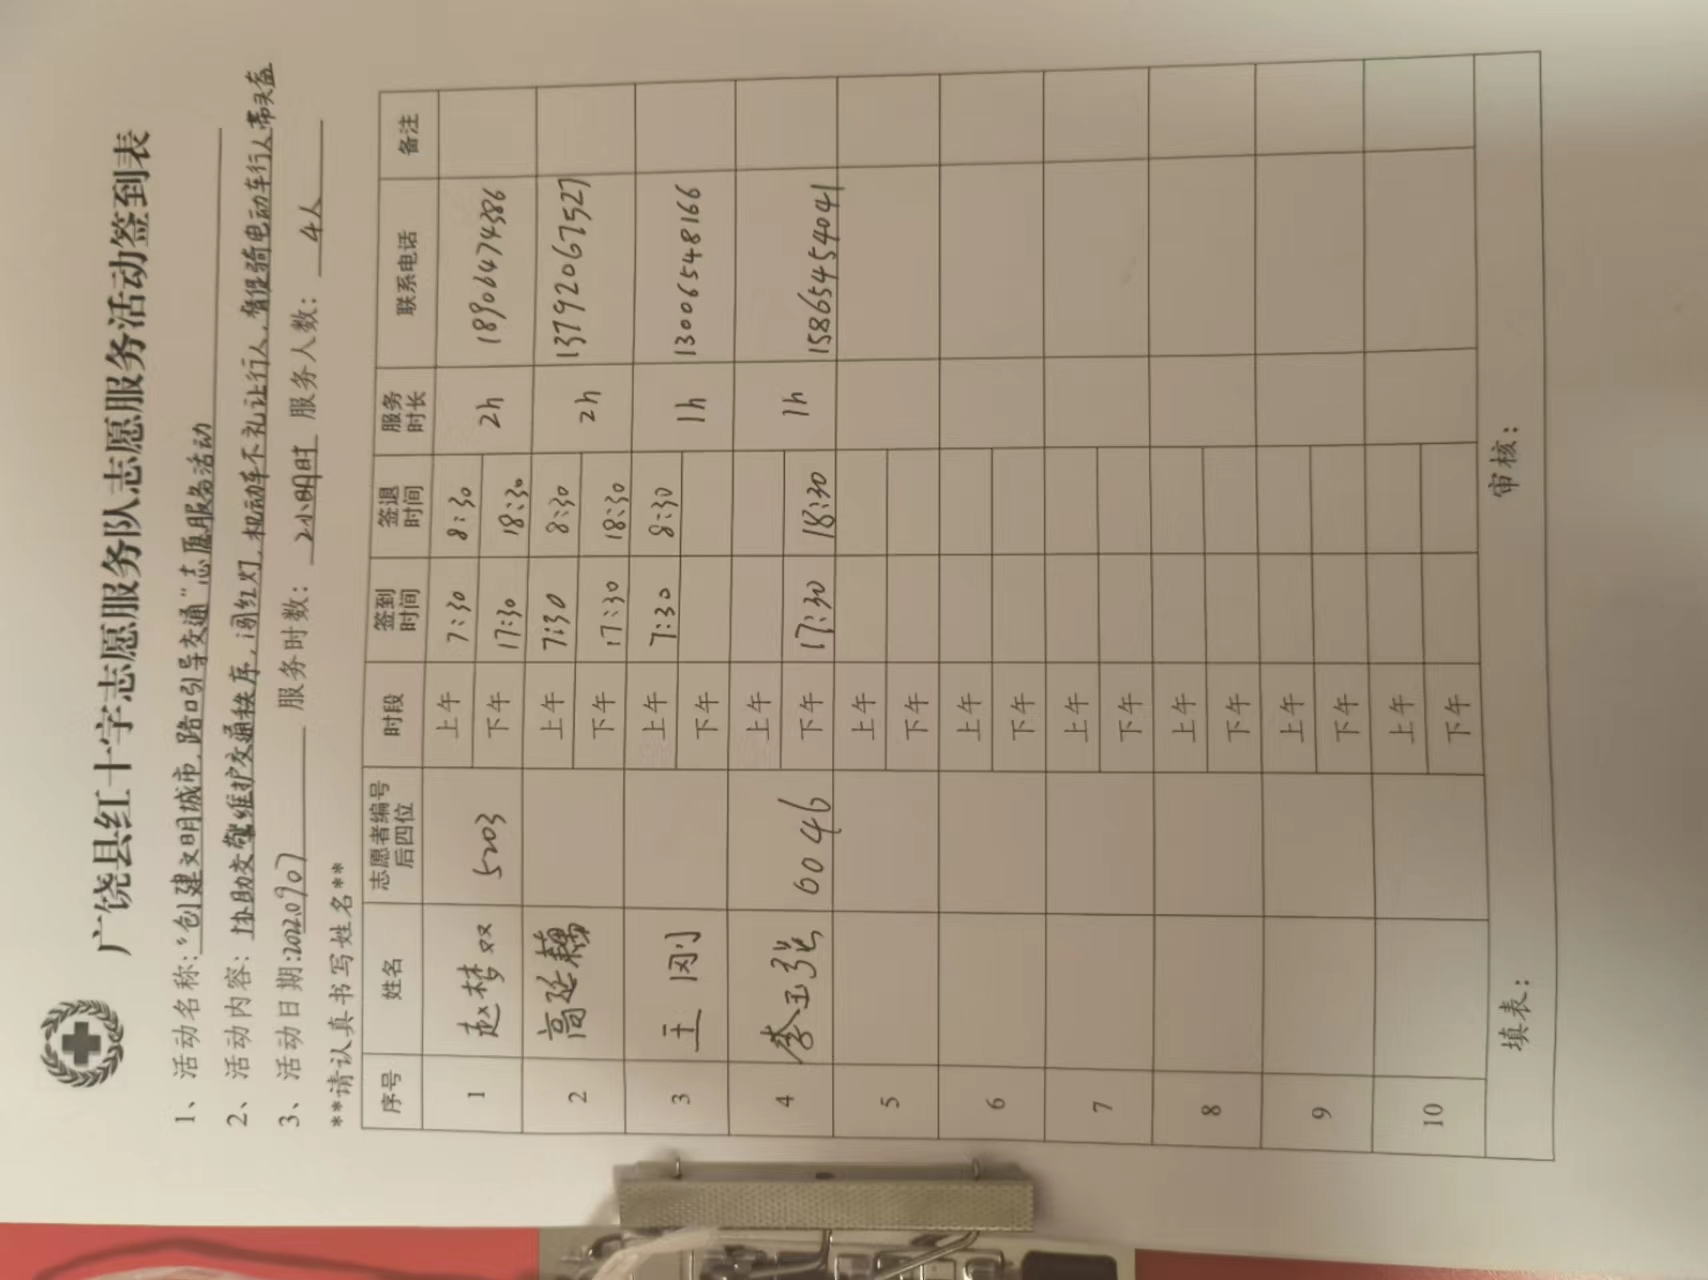 广饶县红十字志愿服务队志愿服务活动签到表
1、活动名称:“创建文明城市,路口引导交通”志愿服务活动
2、活动内容: 协助交警维护交通秩序,闯红灯,机动车不礼让行人,督促骑电动车行人带头盔
3、活动日期:20220907 服务时数: 2小时 服务人数: 4人
**请认真书写姓名**
序号 姓名 志愿者编号后四位 时段 签到时间 签退时间 服务时长 联系电话 备注
1 赵梦双 5203 上午 7:30 8:30 2h 18906474386
下午 17:30 18:30
2 高延藕 上午 7:30 8:30 2h 13792067527
下午 17:30 18:30
3 王刚 上午 7:30 8:30 1h 13006548166
下午
4 李玉强 6046 上午 1h 15865455404
下午 17:30 18:30
5 上午
下午
6 上午
下午
7 上午
下午
8 上午
下午
9 上午
下午
10 上午
下午
填表: 审核: